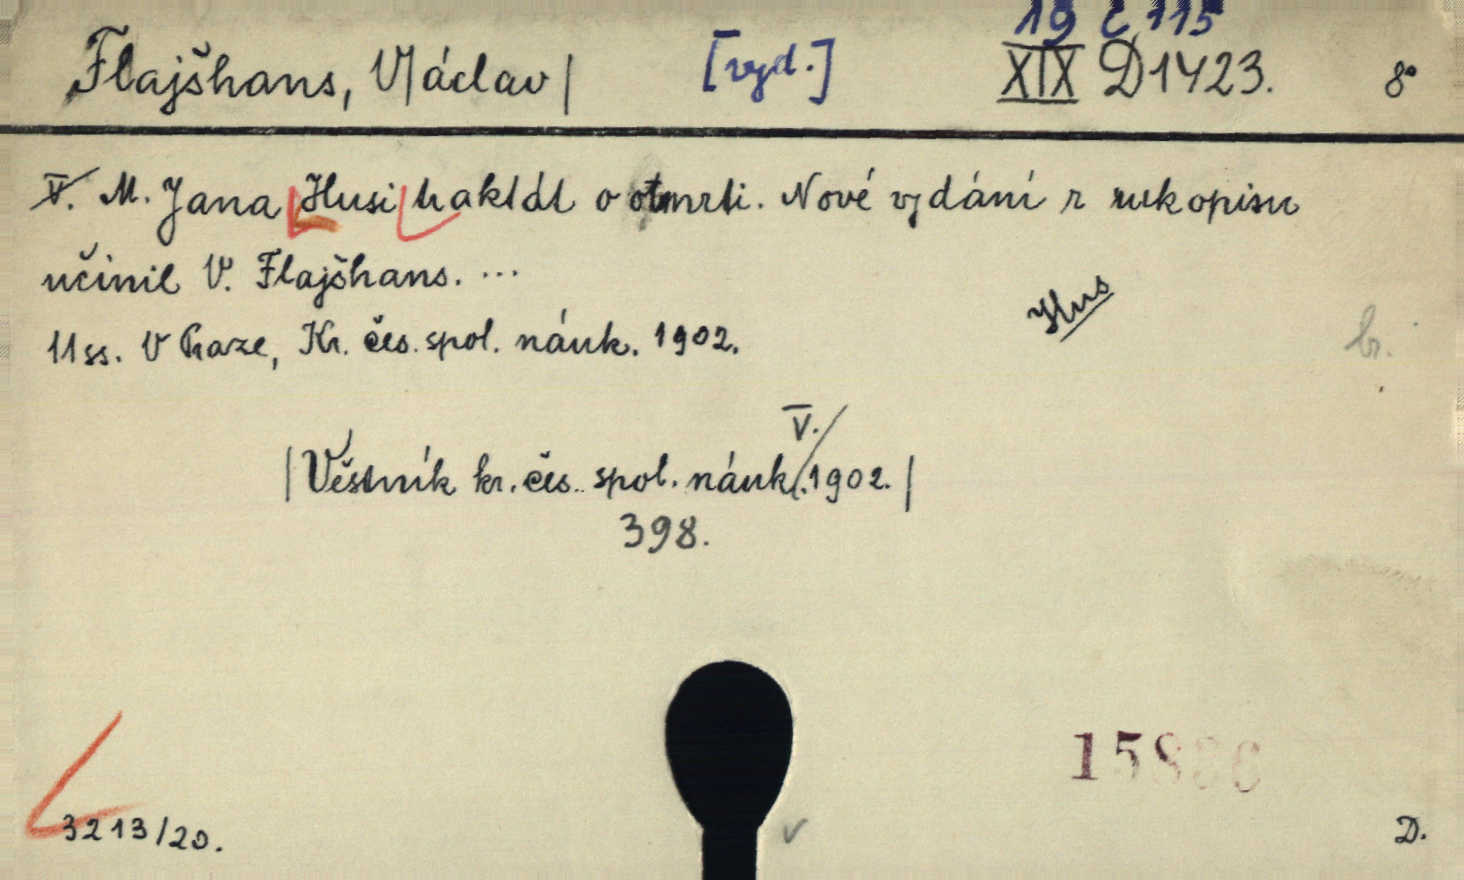 19 C 115
Flajšhans, V|áclav| [vyd.] XIX D1423. 8°
V. M. Jana Husi traktát o otmrti. Nové vydání z rukopisu
učinil V. Flajšhans. ...
Hus
11 ss. V Praze, Kr. čes. spol. náuk. 1902.
br.
V.
|Věstník kr. čes. spol. náuk. 1902.|
398.
3213/20.
D.